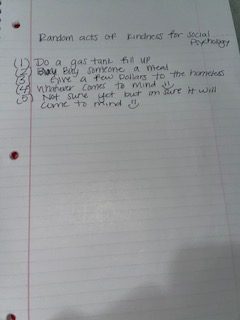 Random acts of kindness for social
Psychology
(1) Do a gas tank fill up
(2) Buy someone a meal
(3) Give a few dollars to the homeless
(4) Whatever comes to mind
(5) Not sure yet but am sure it will
come to mind